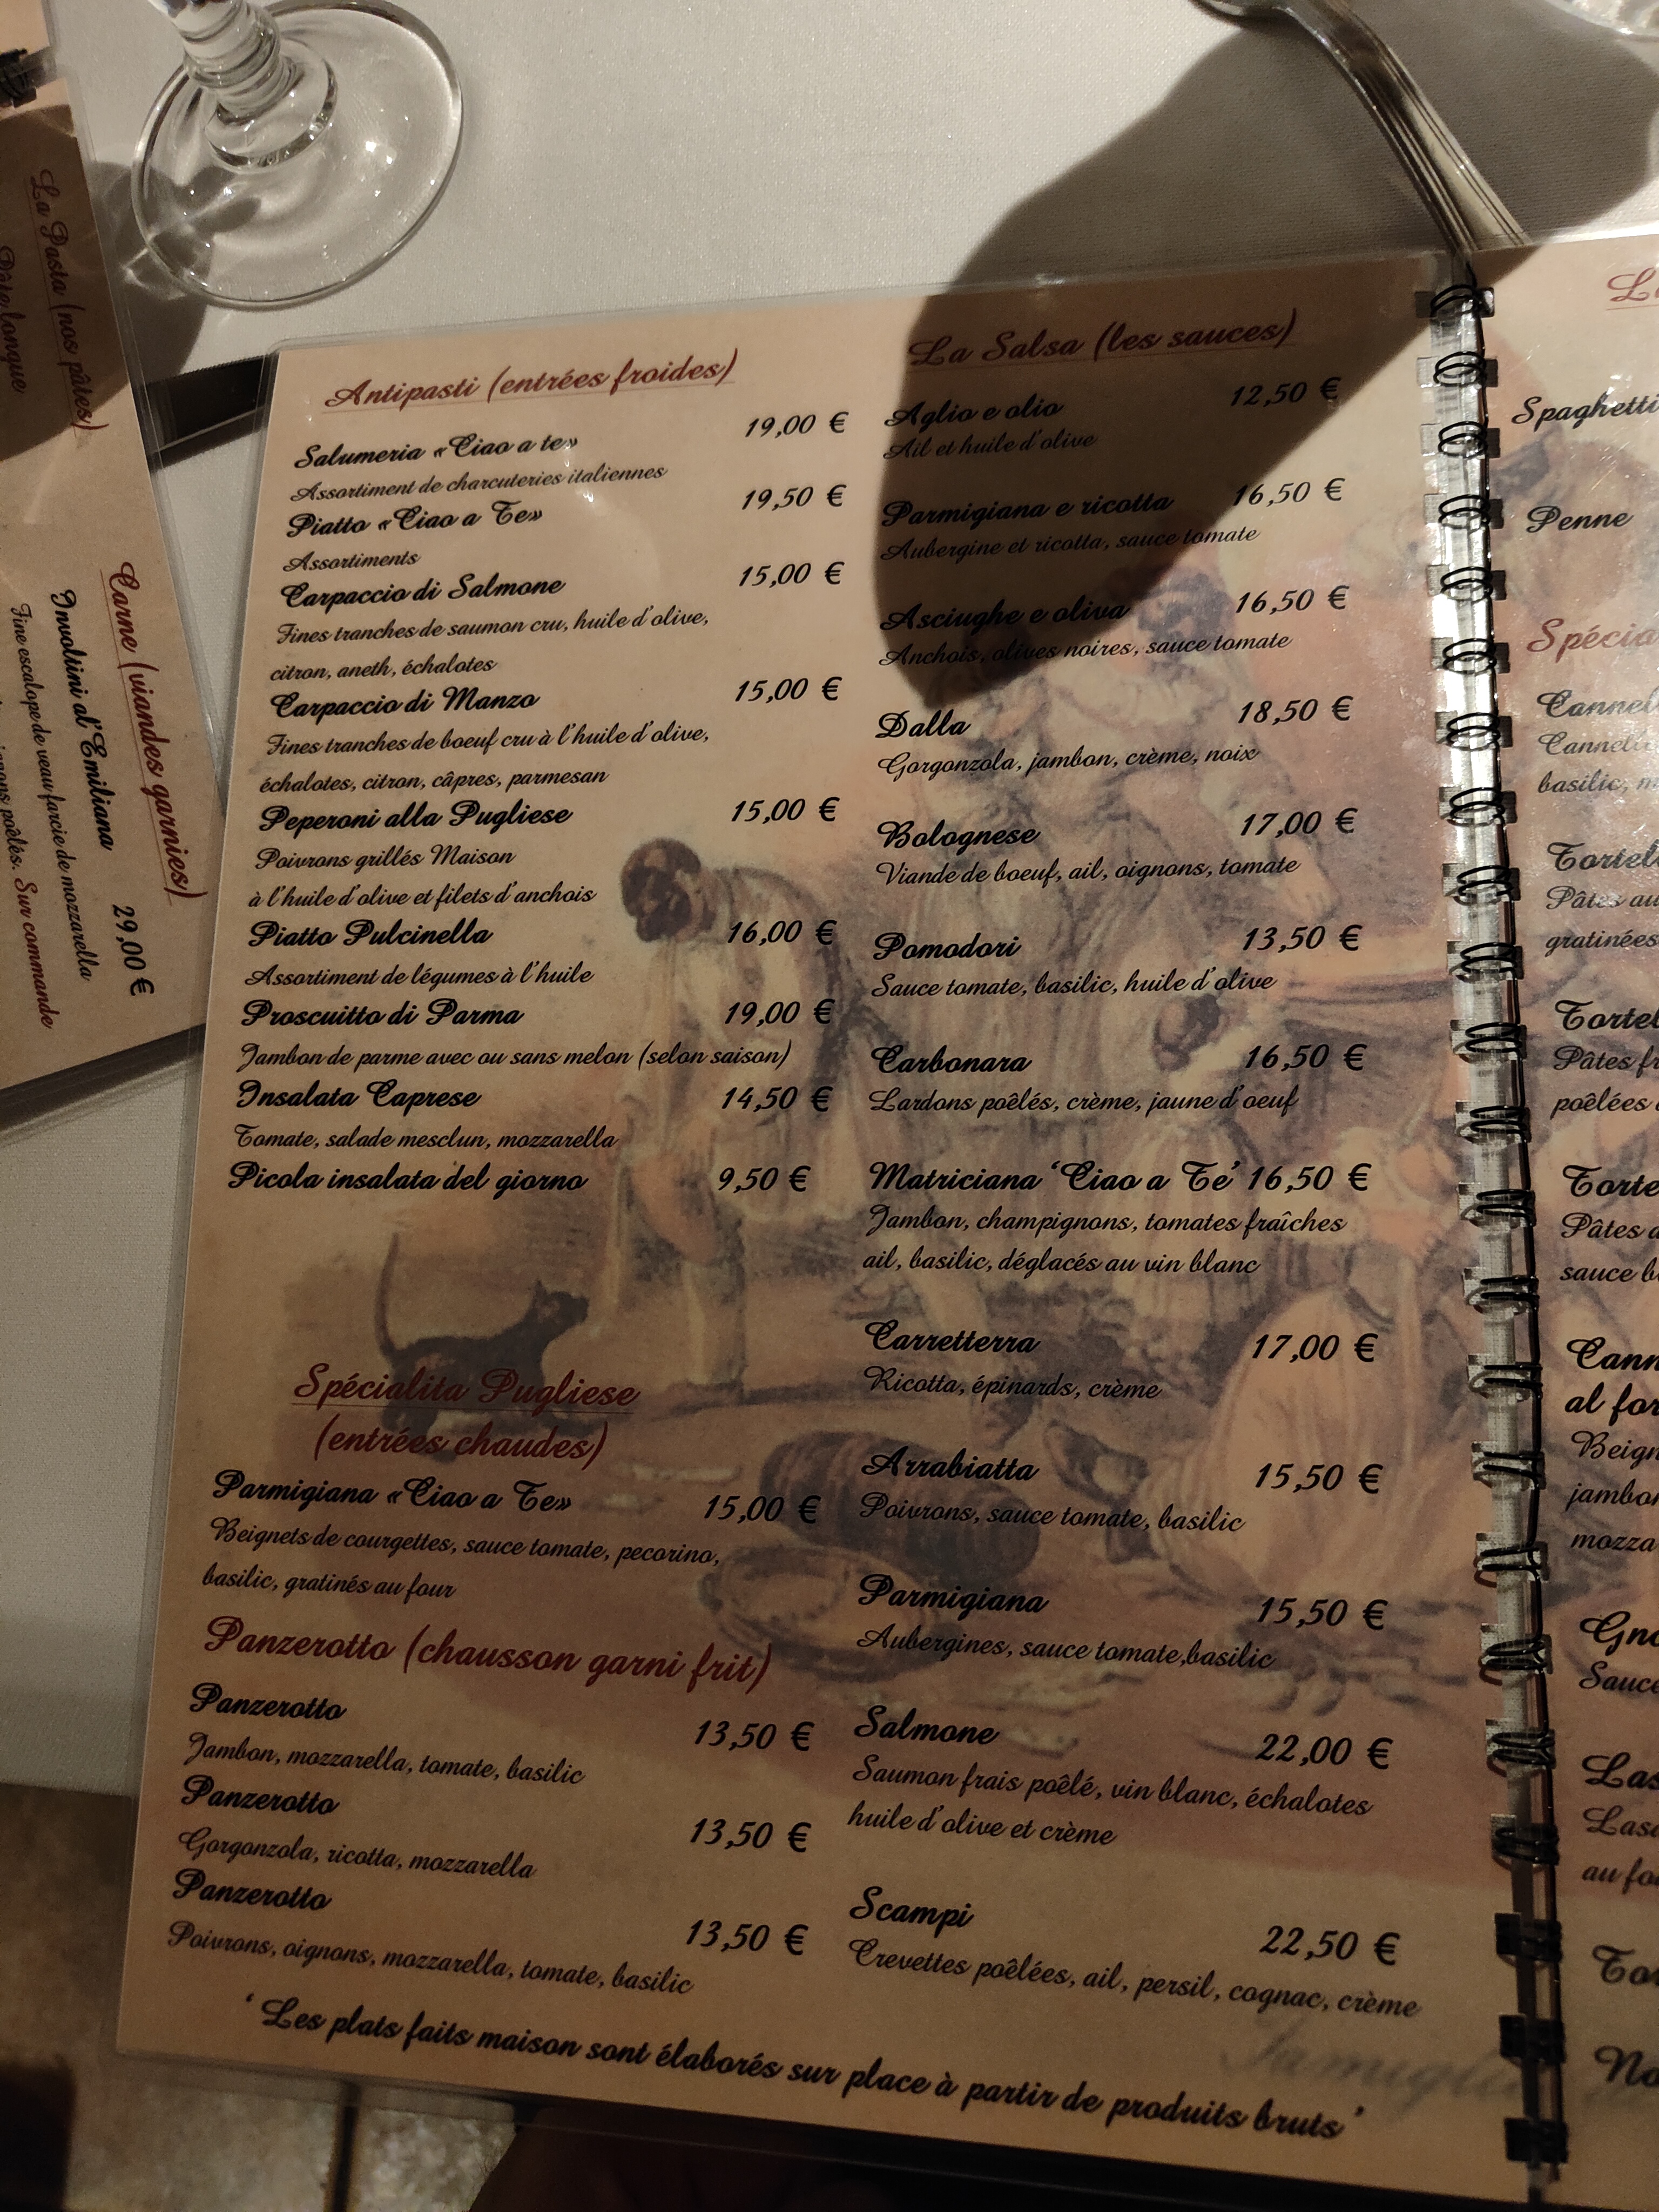 La Pasta (nos pâtes)
Pâte longue
Carne (viandes garnies)
Involtini al'Emiliana 29,00 €
Fine escalope de veau farcie de mozzarella
poêlés. Sur commande
Antipasti (entrées froides)
Salumeria «Ciao a te» 19,00 €
Assortiment de charcuteries italiennes
Piatto «Ciao a Te» 19,50 €
Assortiments
Carpaccio di Salmone 15,00 €
Fines tranches de saumon cru, huile d'olive,
citron, aneth, échalotes
Carpaccio di Manzo 15,00 €
Fines tranches de boeuf cru à l'huile d'olive,
échalotes, citron, câpres, parmesan
Peperoni alla Pugliese 15,00 €
Poivrons grillés Maison
à l'huile d'olive et filets d'anchois
Piatto Pulcinella 16,00 €
Assortiment de légumes à l'huile
Proscuitto di Parma 19,00 €
Jambon de parme avec ou sans melon (selon saison)
Insalata Caprese 14,50 €
Tomate, salade mesclun, mozzarella
Picola insalata del giorno 9,50 €
Spécialita Pugliese
(entrées chaudes)
Parmigiana «Ciao a Te» 15,00 €
Beignets de courgettes, sauce tomate, pecorino,
basilic, gratinés au four
Panzerotto (chausson garni frit)
Panzerotto 13,50 €
Jambon, mozzarella, tomate, basilic
Panzerotto 13,50 €
Gorgonzola, ricotta, mozzarella
Panzerotto 13,50 €
Poivrons, oignons, mozzarella, tomate, basilic
La Salsa (les sauces)
Aglio e olio 12,50 €
Ail et huile d'olive
Parmigiana e ricotta 16,50 €
Aubergine et ricotta, sauce tomate
Asciughe e oliva 16,50 €
Anchois, olives noires, sauce tomate
Dalla 18,50 €
Gorgonzola, jambon, crème, noix
Bolognese 17,00 €
Viande de boeuf, ail, oignons, tomate
Pomodori 13,50 €
Sauce tomate, basilic, huile d'olive
Carbonara 16,50 €
Lardons poêlés, crème, jaune d'oeuf
Matriciana 'Ciao a Te' 16,50 €
Jambon, champignons, tomates fraîches
ail, basilic, déglacés au vin blanc
Carretterra 17,00 €
Ricotta, épinards, crème
Arrabiatta 15,50 €
Poivrons, sauce tomate, basilic
Parmigiana 15,50 €
Aubergines, sauce tomate,basilic
Salmone 22,00 €
Saumon frais poêlé, vin blanc, échalotes
huile d'olive et crème
Scampi 22,50 €
Crevettes poêlées, ail, persil, cognac, crème
'Les plats faits maison sont élaborés sur place à partir de produits bruts'
Spaghetti
Penne
basilic,
Pâtes au
gratinées
poêlées
Pâtes
sauce
al
Sauce
au